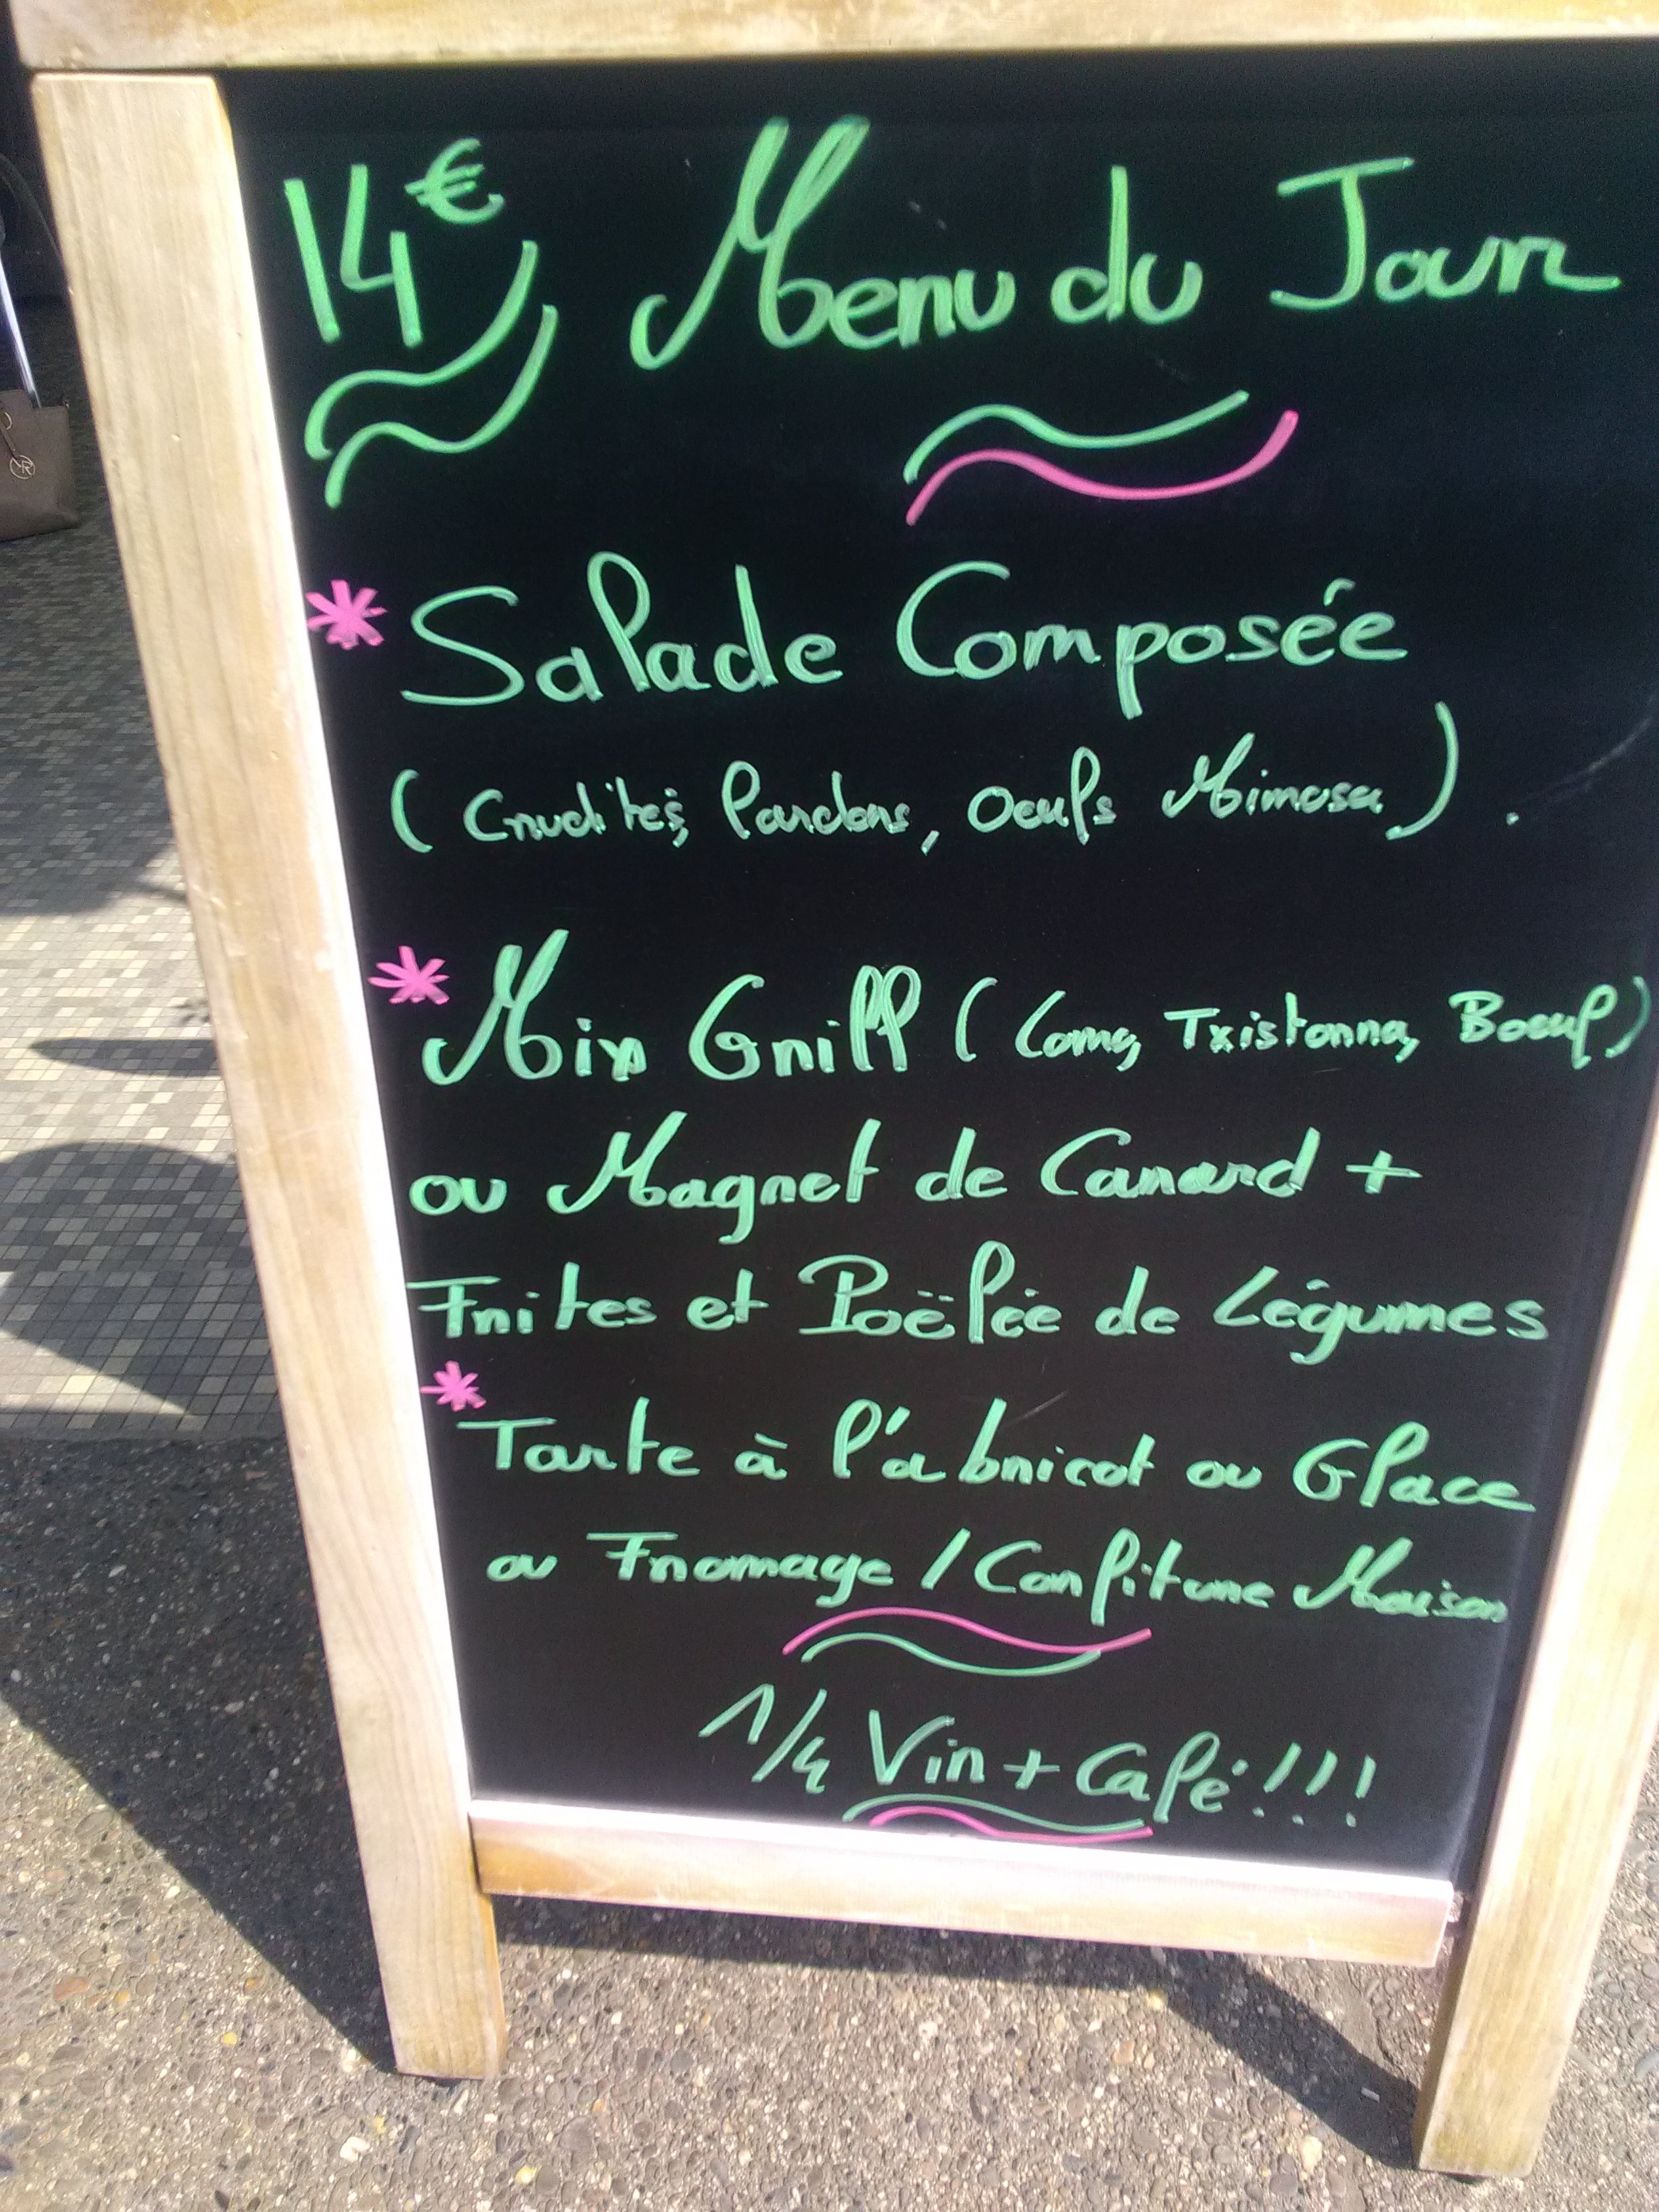 14€ Menu du Jour
* Salade Composée
(Crudités, Lardons, Oeufs Mimosa).
* Mix Grill (Lomo, Txistorra, Boeuf)
ou Magret de Canard +
Frites et Poëlée de Légumes
* Tarte à l'abricot ou Glace
ou Fromage / Confiture Maison
1/4 Vin + Café!!!